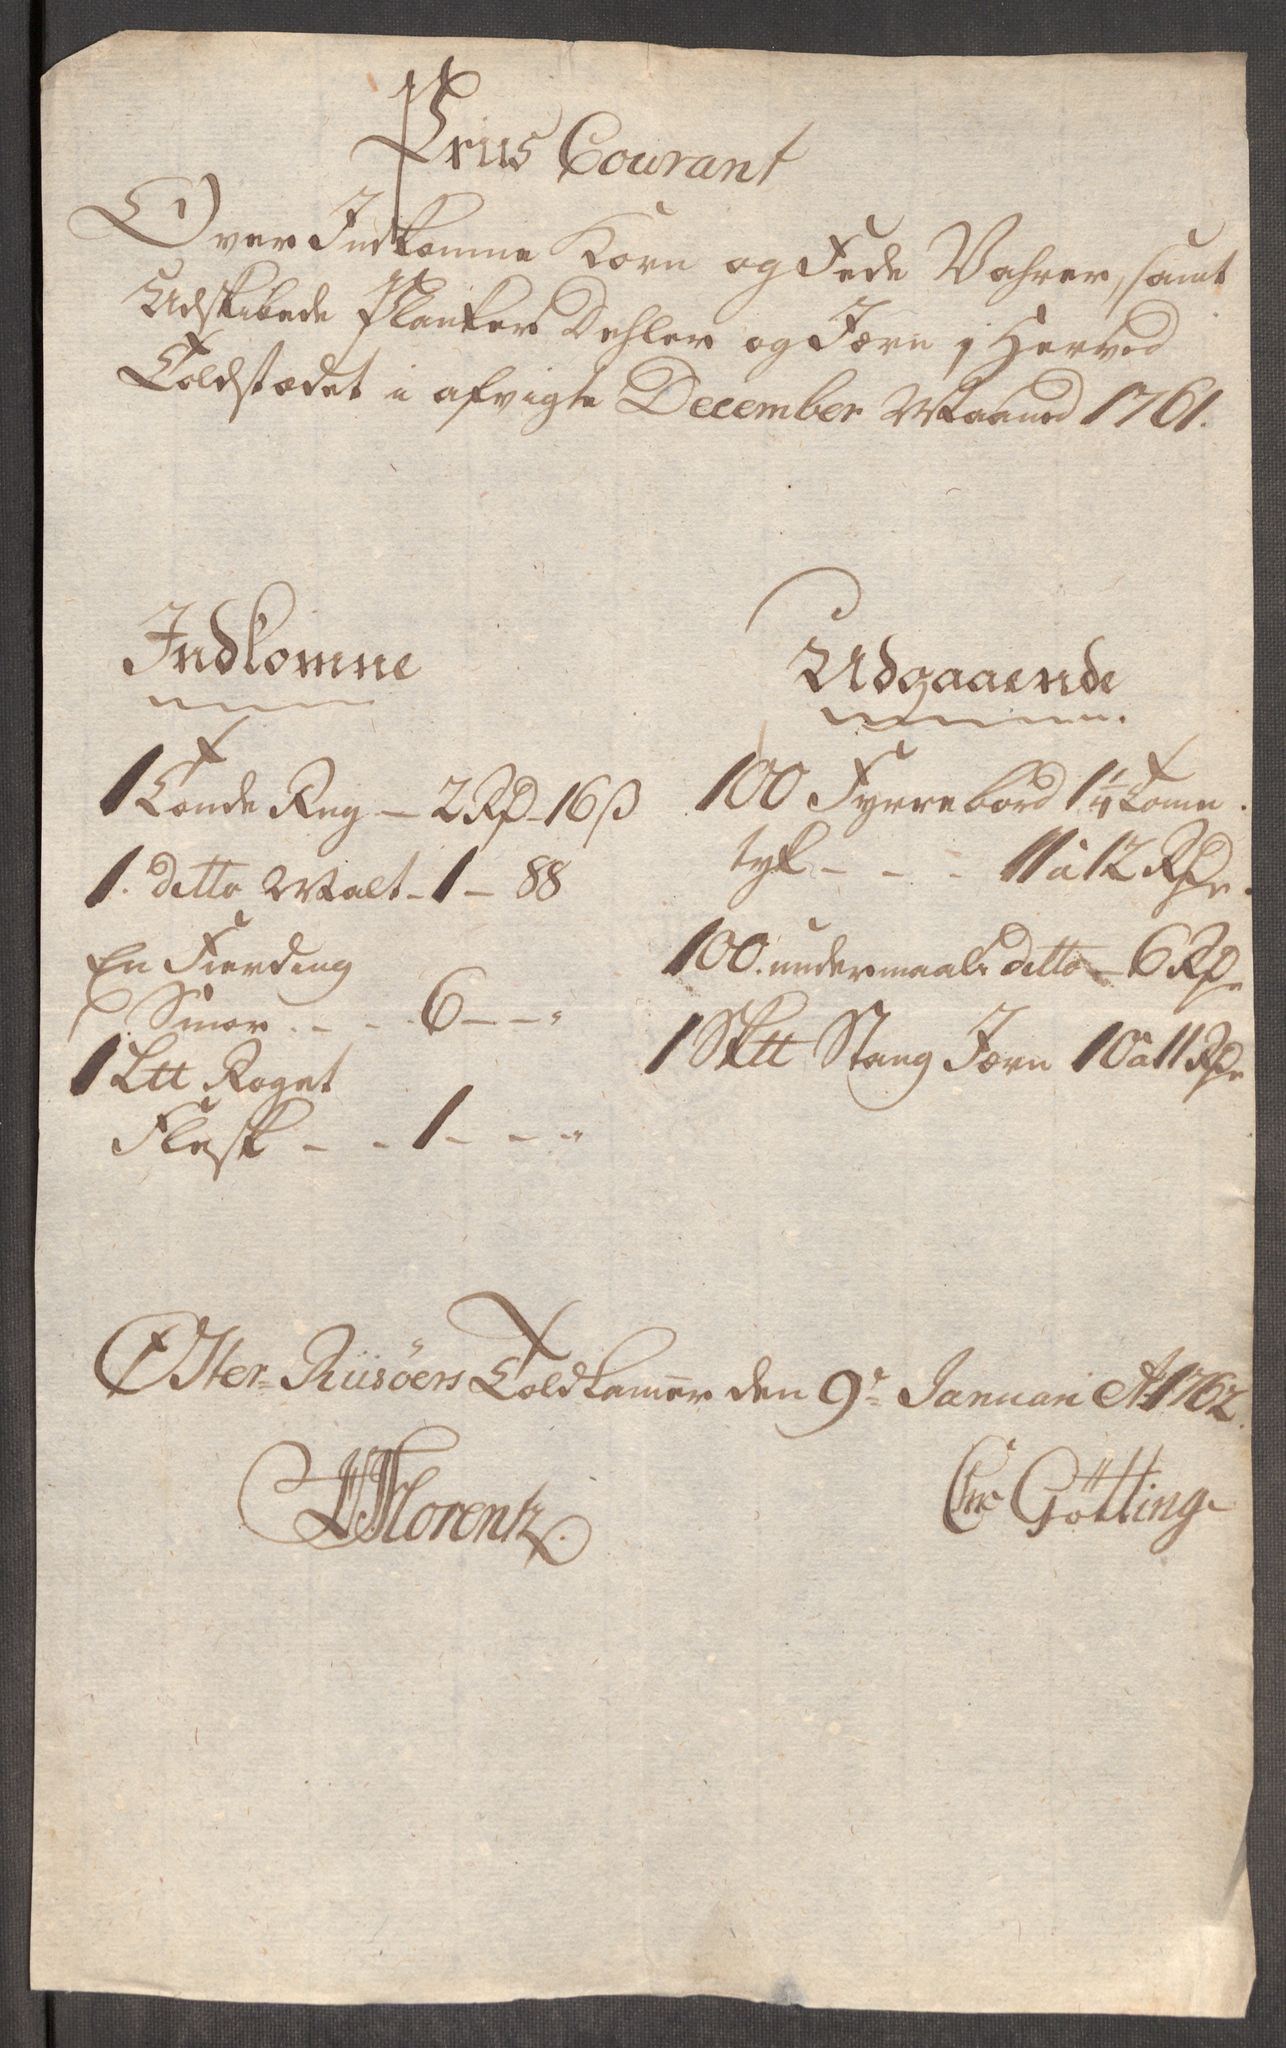 Priis Courant
Over Indkomne Korn og Fede Vahrer, samt
Udskibede Planker Dehler og Jern, Herved
Toldstædet i afvigte December Maaned 1761.
Indkomne
1 Tønde Rug - 2 Rd - 16 ß
1. ditto Malt - 1 - 88
En Fierding
Smør . - . 6 - - "
1 L℔ Røget
Flesk - - 1 - - "
Udgaaende
100 Fyrrebord 1 1/4 Tome
tyk - - - 11 à 12 Rdr.
100. undermaals ditto - 6 Rdr
1 Sk℔ Stang Jern 10 à 11 Rdr
Øster-Riisöers Toldkamer den 9e Januari Ao 1762.
Florentz.
Chr Götting